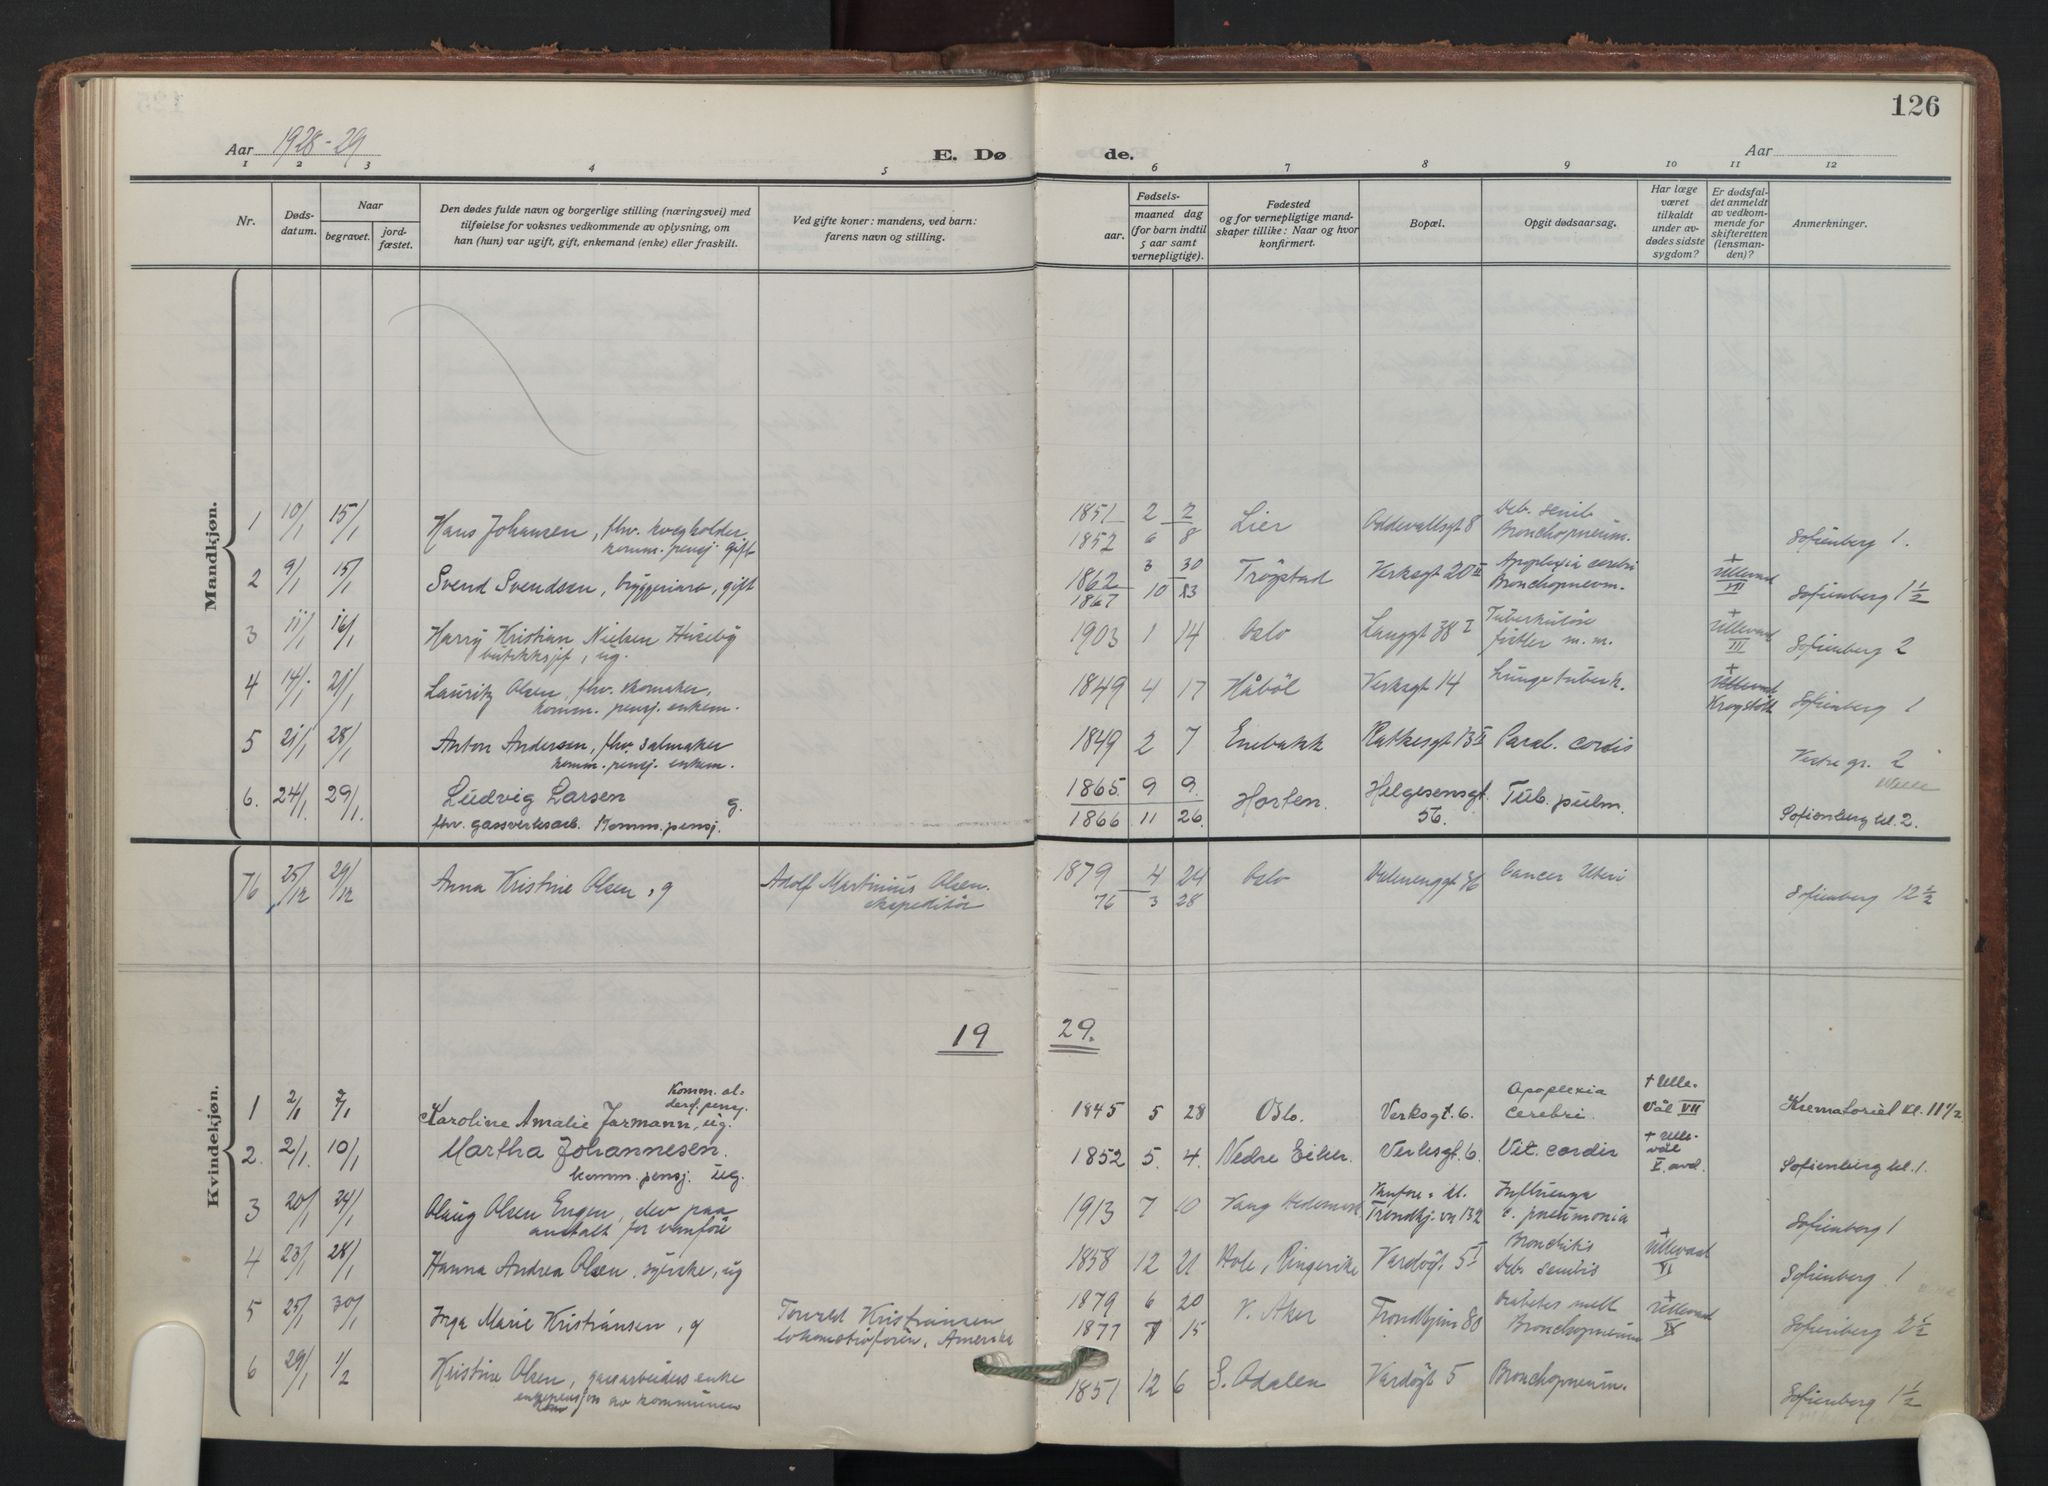 126
Aar 1928-29
E. Dø de.
Aar
1 2 3 4 5 6 7 8 9 10 11 12
Nr.
Døds-
datum.
Naar
begravet.
jord-
fæstet.
Den dødes fulde navn og borgerlige stilling (næringsvei) med
tilføielse for voksnes vedkommende av oplysning, om
han (hun) var ugift, gift, enkemand (enke) eller fraskilt.
Ved gifte koner: mandens, ved barn:
farens navn og stilling.
Fødsels-
aar.
maaned dag
(for barn indtil
5 aar samt
vernepligtige).
Fødested
og for vernepligtige mand-
skaper tillike: Naar og hvor
konfirmert.
Bopæl.
Opgit dødsaarsag.
Har læge
været
tilkaldt
under av-
dødes sidste
sygdom?
Er dødsfal-
det anmeldt
av vedkom-
mende for
skifteretten
(lensman-
den)?
Anmerkninger.
Mandkjøn.
1 10/1 15/1 Hans Johansen, fhv. 1851 2 2 Lier Oddevallsgt 8 Deb. senil.
komm. pensj. gift 1852 6 8 Bronchopneum. Sofienberg 1.
2 9/1 15/1 Svend Svendsen, bryggeriarb, gift 1862 3 30 Trøgstad Verksgt 20 II Apoplexia cerebri + Ullevaal
1867 10 Bronchopneum. Sofienberg 1 1/2
3 11/1 16/1 Harry Kristian Nielsen Huseby 1903 1 14 Oslo Langgt 38 I Tuberkuløse + Ullevaal III
ug. m. m. Sofienberg 2
4 14/1 21/1 Lauritz Olsen, fhv. skomaker, 1849 4 17 Håbøl Verksgt 14 Lungetuberk. + Ullevaal
komm. pensj. enkem. Krogstøtt Sofienberg 1
5 21/1 28/1 Anton Andersen, fhv. salmaker 1849 2 7 Enebakk Rathkesgt 13 II Paral. cordis
komm. pensj. enkem. Vestre gr. 2
6. 24/1 29/1. Ludvig Larsen g. 1865 9 9. Horten. Helgesensgt. 56. Tub. pulm.
fhv. gassverksarb. Komm. pensj. 1866 11 26. Sofienberg kl. 2.
Kvindekjøn.
76 25/12 29/12 Anna Kristine Olsen, g Adolf Martinius Olsen. 1879 4 24 Oslo Valerenggt 36 Cancer Uteri
ekspeditør 76 3 28 Sofienberg 12 1/2
19 29.
1 2/1 7/1 Karoline Amalie Jarmann, ug. Komm. al-
derd. pensj. 1845 5 28 Oslo. Verksgt. 6. Apoplexia
cerebri. + Ulle-
vål VII Krematoriet kl. 11 1/2
2. 2/1. 10/1 Martha Johannesen. 1852 5. 4. Nedre Eiker. Verksgt. 6. Vit. cordis + Ulle-
vål
V. avd.
komm. pensj. ug. Sofienberg kl. 1.
3 20/1 24/1 Olaug Olsen Engen, elev paa 1913 7 10 Vang Hedemark Vanføre- kl. Influenza
anstalt for vanføre Trondhj. vn 132 c. pneumonia Sofienberg 1
4 23/1 28/1 Hanna Andrea Olsen, syerske, ug 1858 12 21 Hole, Ringerike Vardøgt 5 I Bronchitis + Ullevaal VI
Deb. senilis Sofienberg 1
5 25/1 30/1 Inga Marie Kristiansen, g Torvald Kristiansen 1879 6 20 V. Aker Trondhjems 80 Diabetes mell + Ullevaal IX
lokomotivfører, Amerika 1877 7 15 Bronchopneum Sofienberg 2 1/2
6 29/1 1/2 Kristine Olsen, gassarbeiders enke 1851 12 6 S. Odalen Vardøgt 5 Bronchopneum.
enkepensjon av kommunen Sofienberg 1 1/2